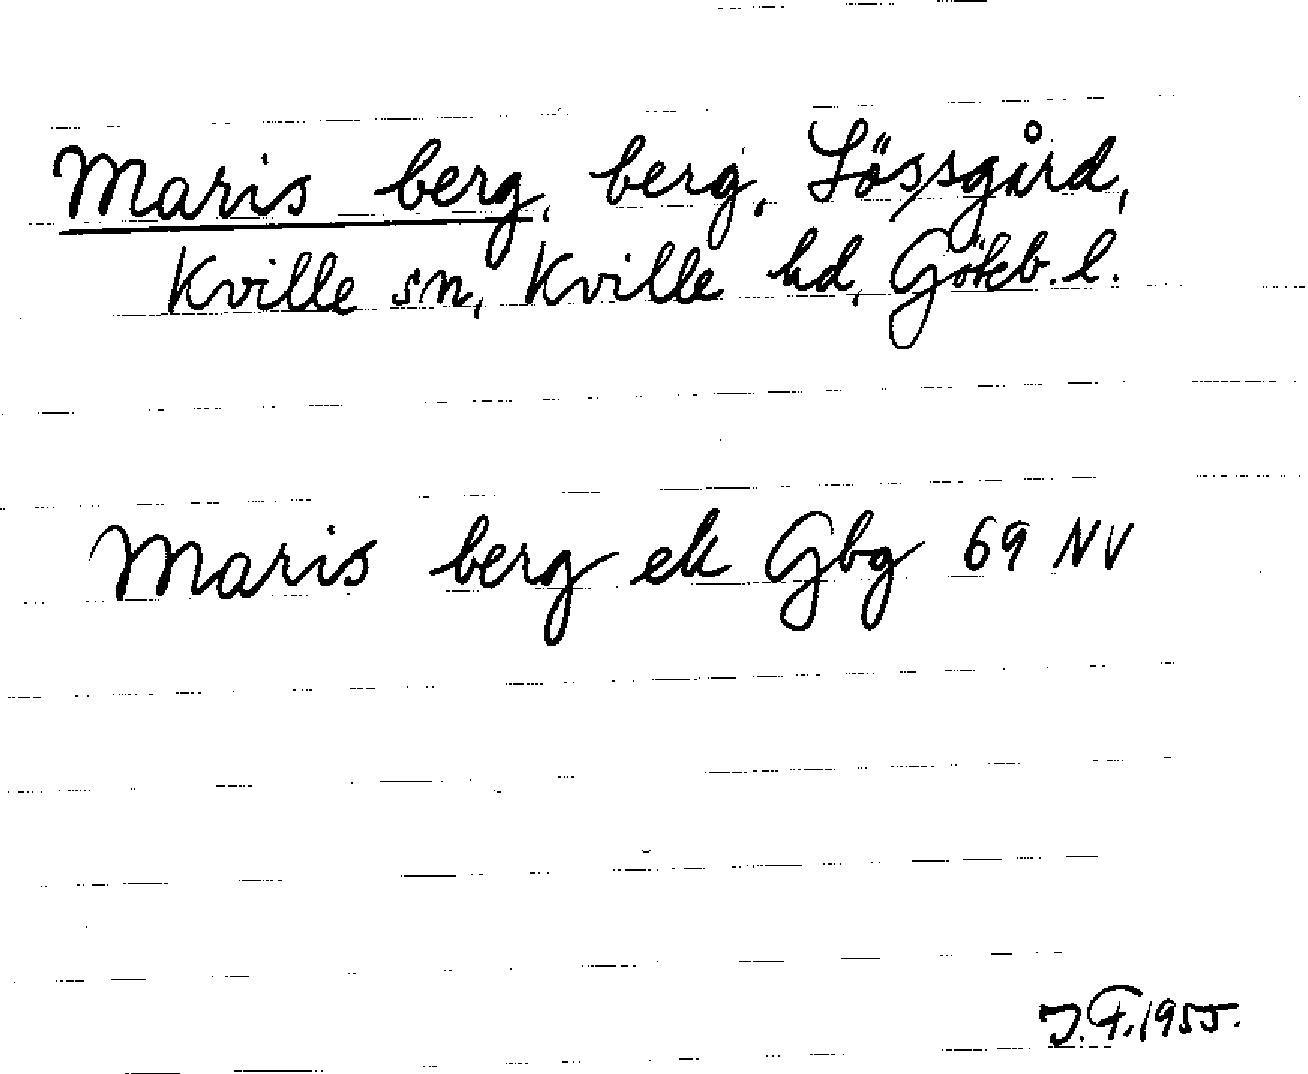 Maris berg, berg, Lössgård,
Kville sn, Kville hd, Göteb. l.
Maris berg ek Gbg 69 NV
J.F. 1955.